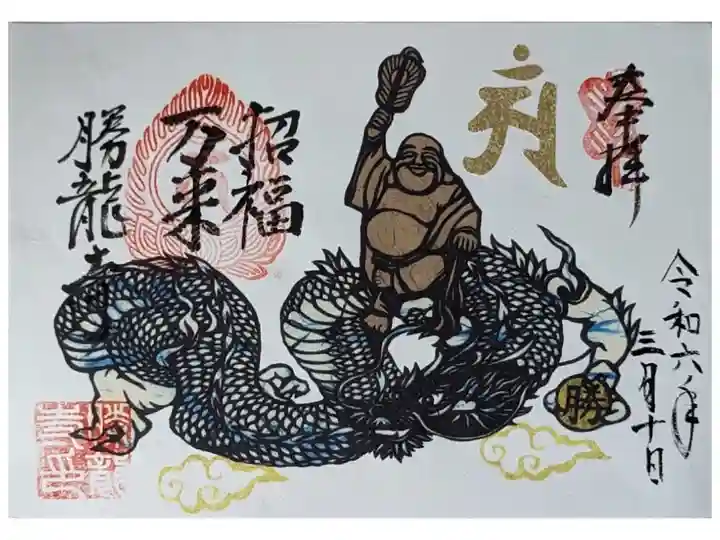 奉拝
令和六年
三月十日
招福
万来
勝龍寺
勝